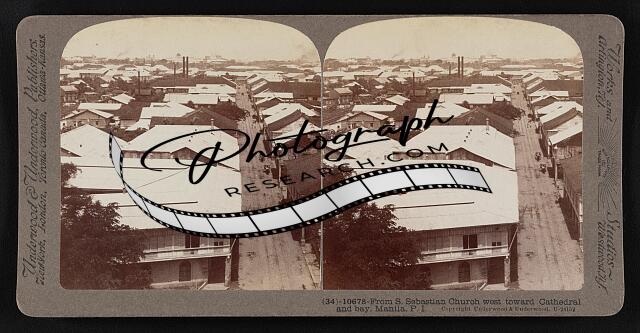 Underwood & Underwood, Publishers.
New York, London, Toronto-Canada, Ottawa-Kansas.
Works and Studios
Arlington, N.J. Westwood, N.J.
Photograph
RESEARCH.COM
(34)-10678-From S. Sebastian Church west toward Cathedral
and bay, Manila, P. I. Copyright Underwood & Underwood. U-24152